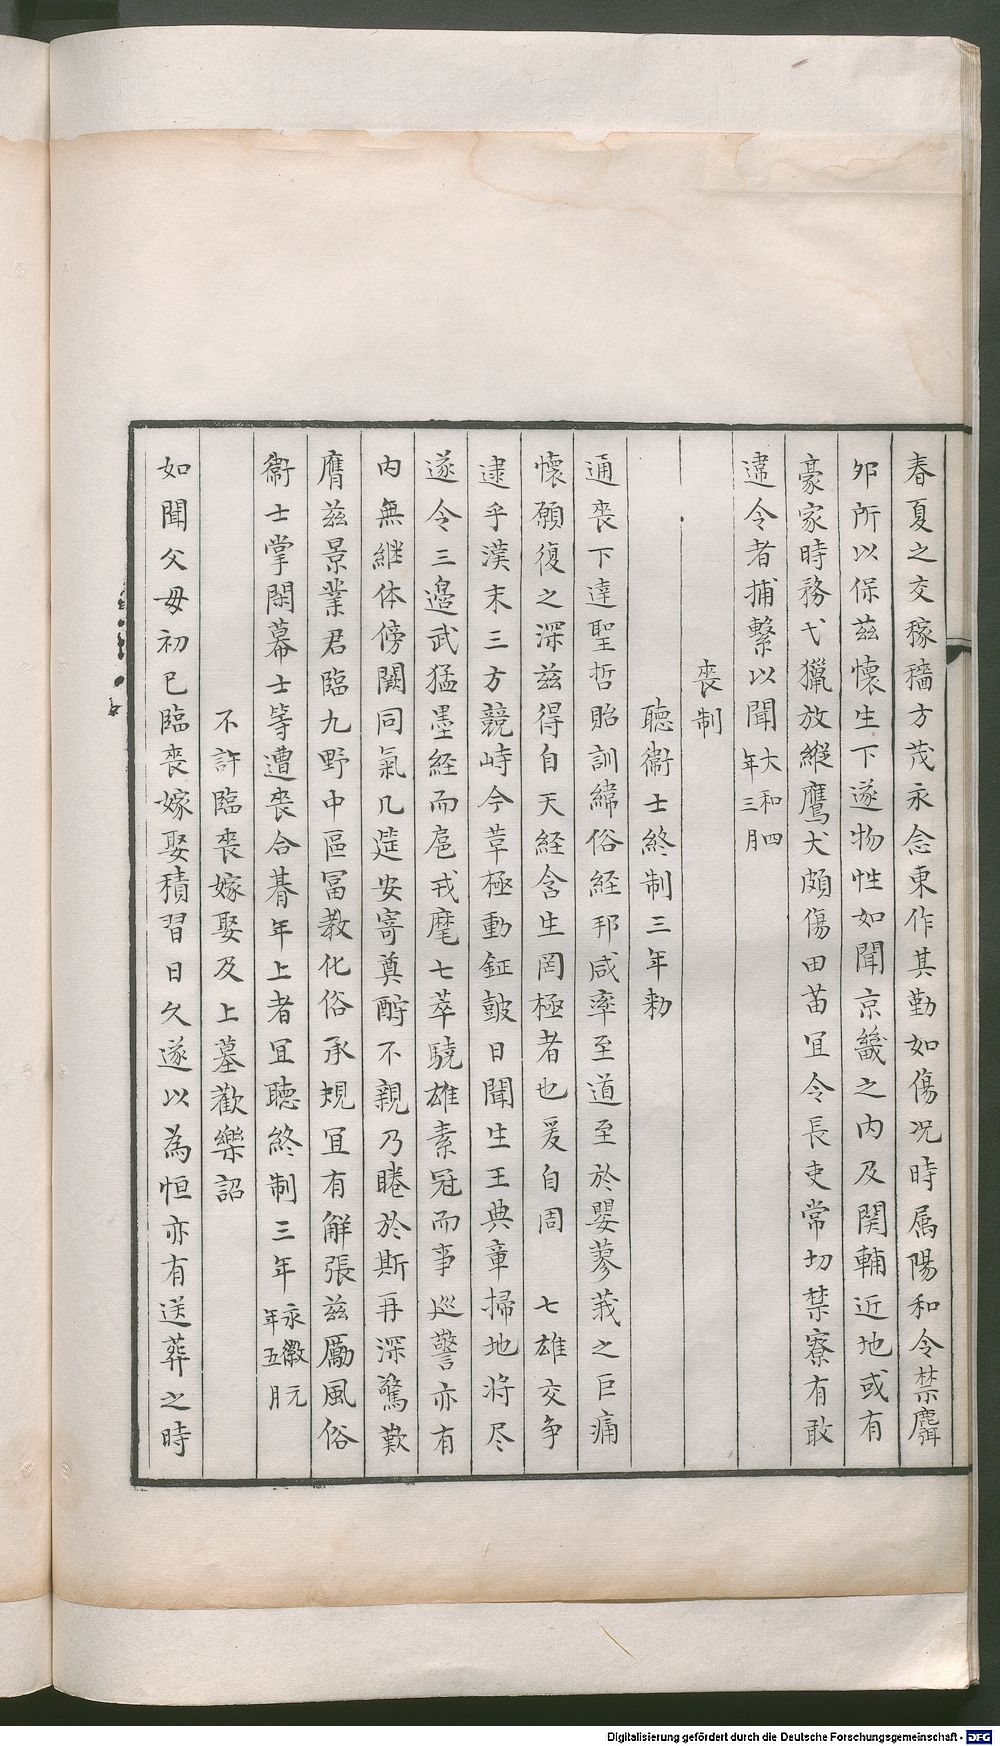 春夏之交稼穡方茂永念東作其勤如傷况時属陽和令禁麛
夘所以保茲懷生下遂物性如聞京畿之内及関輔近地或有
豪家時務弋獵放縱鷹犬頗傷田苗宜令長吏常切禁寮有敢
違令者捕繫以聞大和四年三月
喪制
聽衞士終制三年勅
通喪下達聖哲貽訓緯俗経邦咸率至道至於嬰蓼莪之巨痛
懷願復之深茲得自天経含生罔極者也爰自周 七雄交争
逮乎漢末三方競峙今草極動鉦皷日聞生王典章掃地将尽
遂令三邉武猛墨経而扈戎麾七萃驍雄素冠而事巡警亦有
内無継体傍闕同氣几筵安寄奠酹不親乃睠於斯再深驚歎
膺茲景業君臨九野中區冨教化俗承規宜有解張茲厲風俗
衞士掌閑幕士等遭喪合朞年上者宜聽終制三年永徽元年五月
不許臨喪嫁娶及上墓歡樂詔
如聞父毋初已臨喪嫁娶積習日久遂以為恒亦有送葬之時
Digitalisierung gefördert durch die Deutsche Forschungsgemeinschaft - DFG